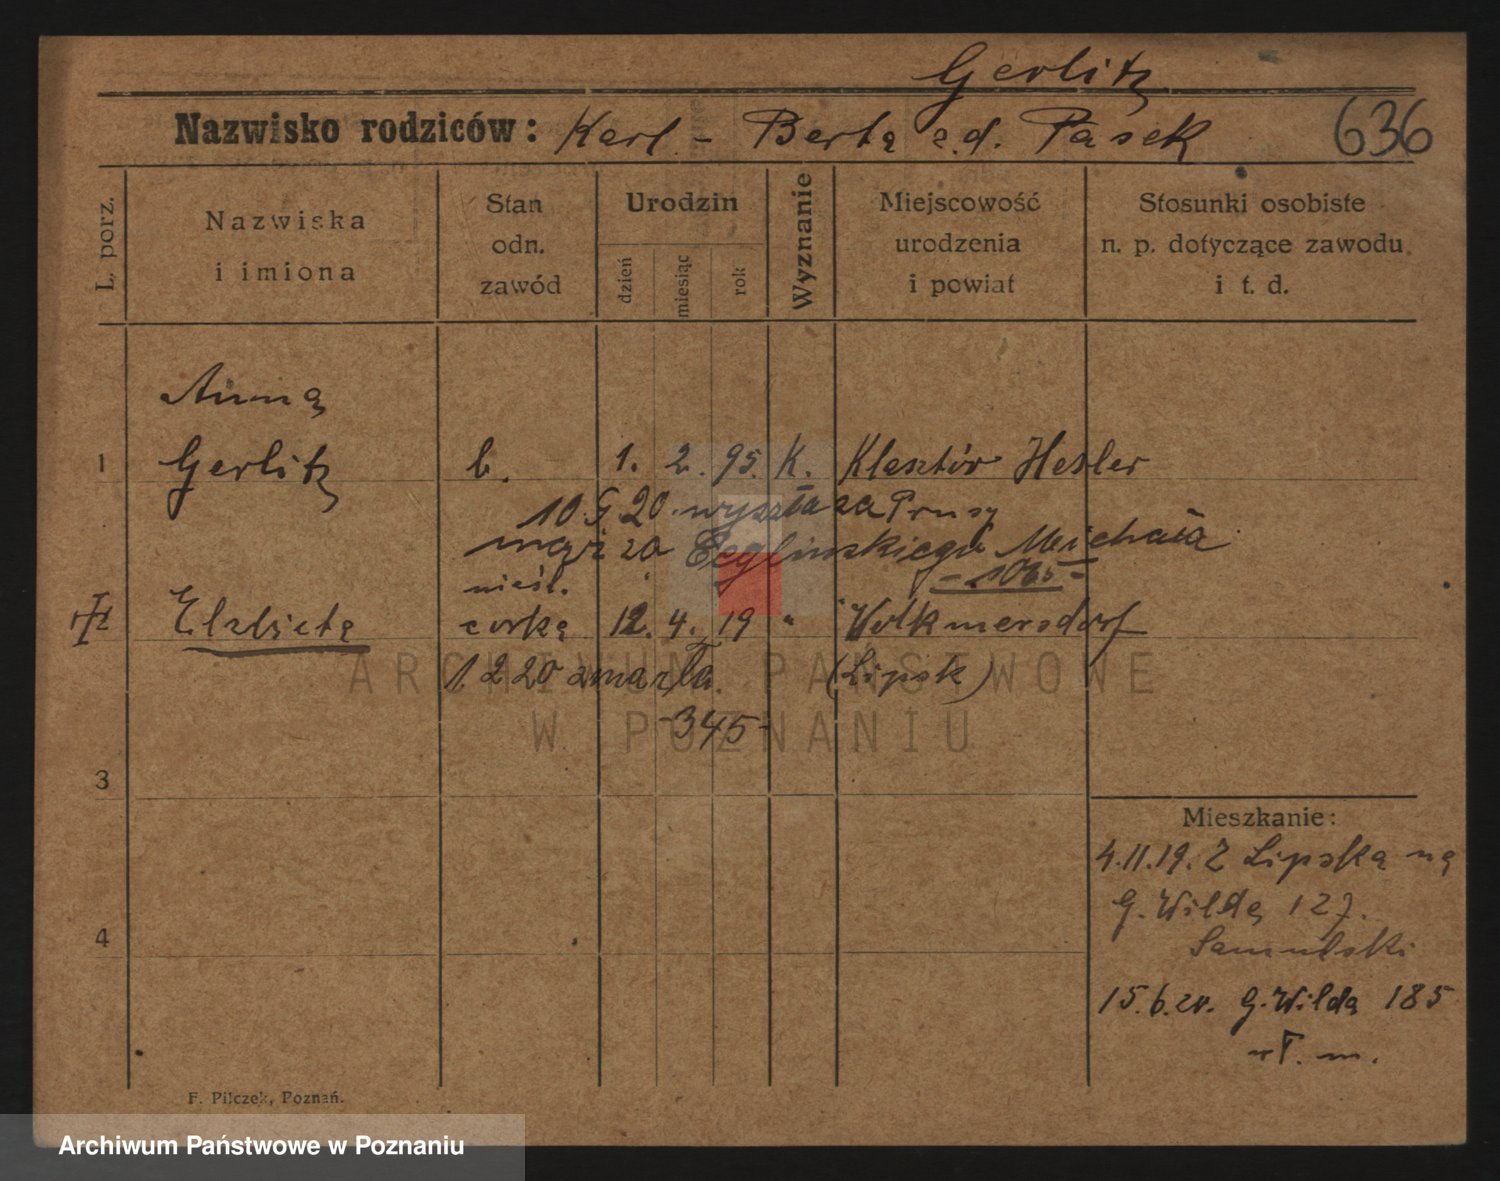 Gerlitz
Nazwisko rodziców: Karl - Berta z.d. Pasek 636
L. porz.
Nazwiska i imiona
Stan odn. zawód
Urodzin
dzień miesiąc rok
Wyznanie
Miejscowość urodzenia i powiat
Stosunki osobiste n. p. dotyczące zawodu i t. d.
Anna
1 Gerlitz b. 1. 2. 95. K. Klasztór Hesler
10.9.20. wyszła za Prusy
mąż za Ceglinskiego Michała
- 1065 -
nieśl.
Elzbieta córka 12. 4. 19 " Volkmersdorf
1 2 20 zmarła. (Lipsk)
-345-
3
Mieszkanie:
4.11.19. Z Lipska na
G. Wilda 127.
Samulski
4
15.6.20. G. Wilda 185
F. Pilczek, Poznań.
ARCHIWUM PAŃSTWOWE
W POZNANIU
Archiwum Państwowe w Poznaniu